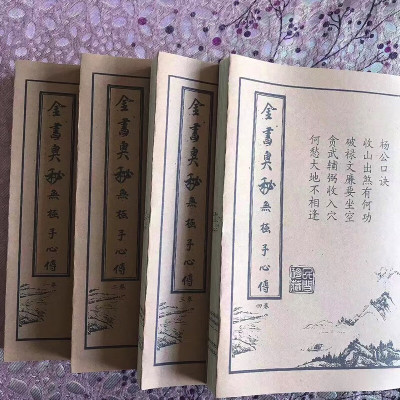 金書奥秘無極子心傳
卷
金書奥秘無極子心傳
二卷
金書奥秘無極子心傳
三卷
杨公口诀
收山出煞有何功
破禄文廉要坐空
贪武辅弼收入穴
何愁大地不相逢
金書奥秘無極子心傳
四卷